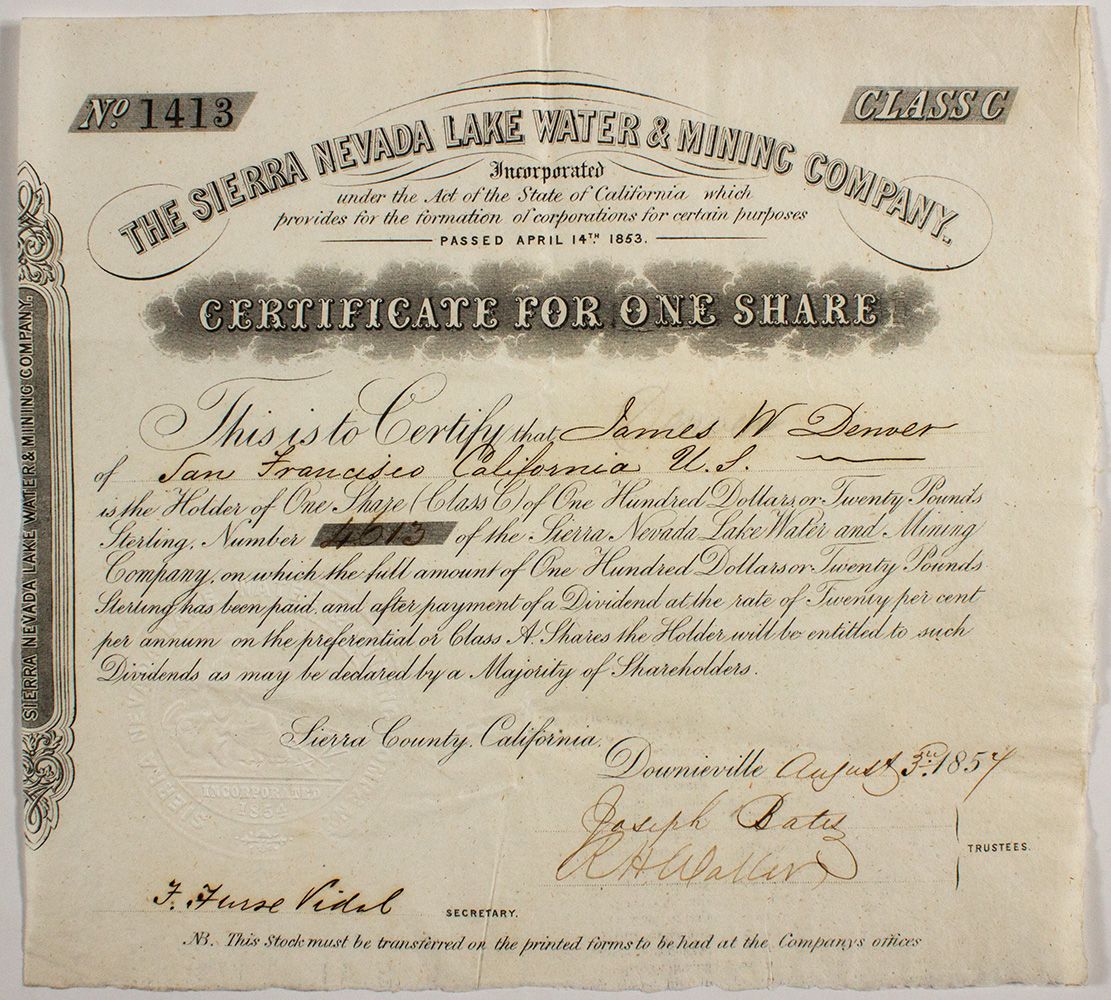 No. 1413
CLASS C
THE SIERRA NEVADA LAKE WATER & MINING COMPANY.
Incorporated
under the Act of the State of California which
provides for the formation of corporations for certain purposes
PASSED APRIL 14TH. 1853.
CERTIFICATE FOR ONE SHARE
This is to Certify that James W Denver
of San Francisco California U.S.
is the Holder of One Share (Class C) of One Hundred Dollars or Twenty Pounds
Sterling, Number 4613 of the Sierra Nevada Lake Water and Mining
Company, on which the full amount of One Hundred Dollars or Twenty Pounds
Sterling has been paid, and after payment of a Dividend at the rate of Twenty per cent
per annum on the preferential or Class A Shares the Holder will be entitled to such
Dividends as may be declared by a Majority of Shareholders.
Sierra County, California.
Downieville August 3rd. 1854
Joseph Bates
TRUSTEES.
F. Furse Vidal SECRETARY.
NB. This Stock must be transferred on the printed forms to be had at the Companys offices
SIERRA NEVADA LAKE WATER & MINING COMPANY.
INCORPORATED
1854